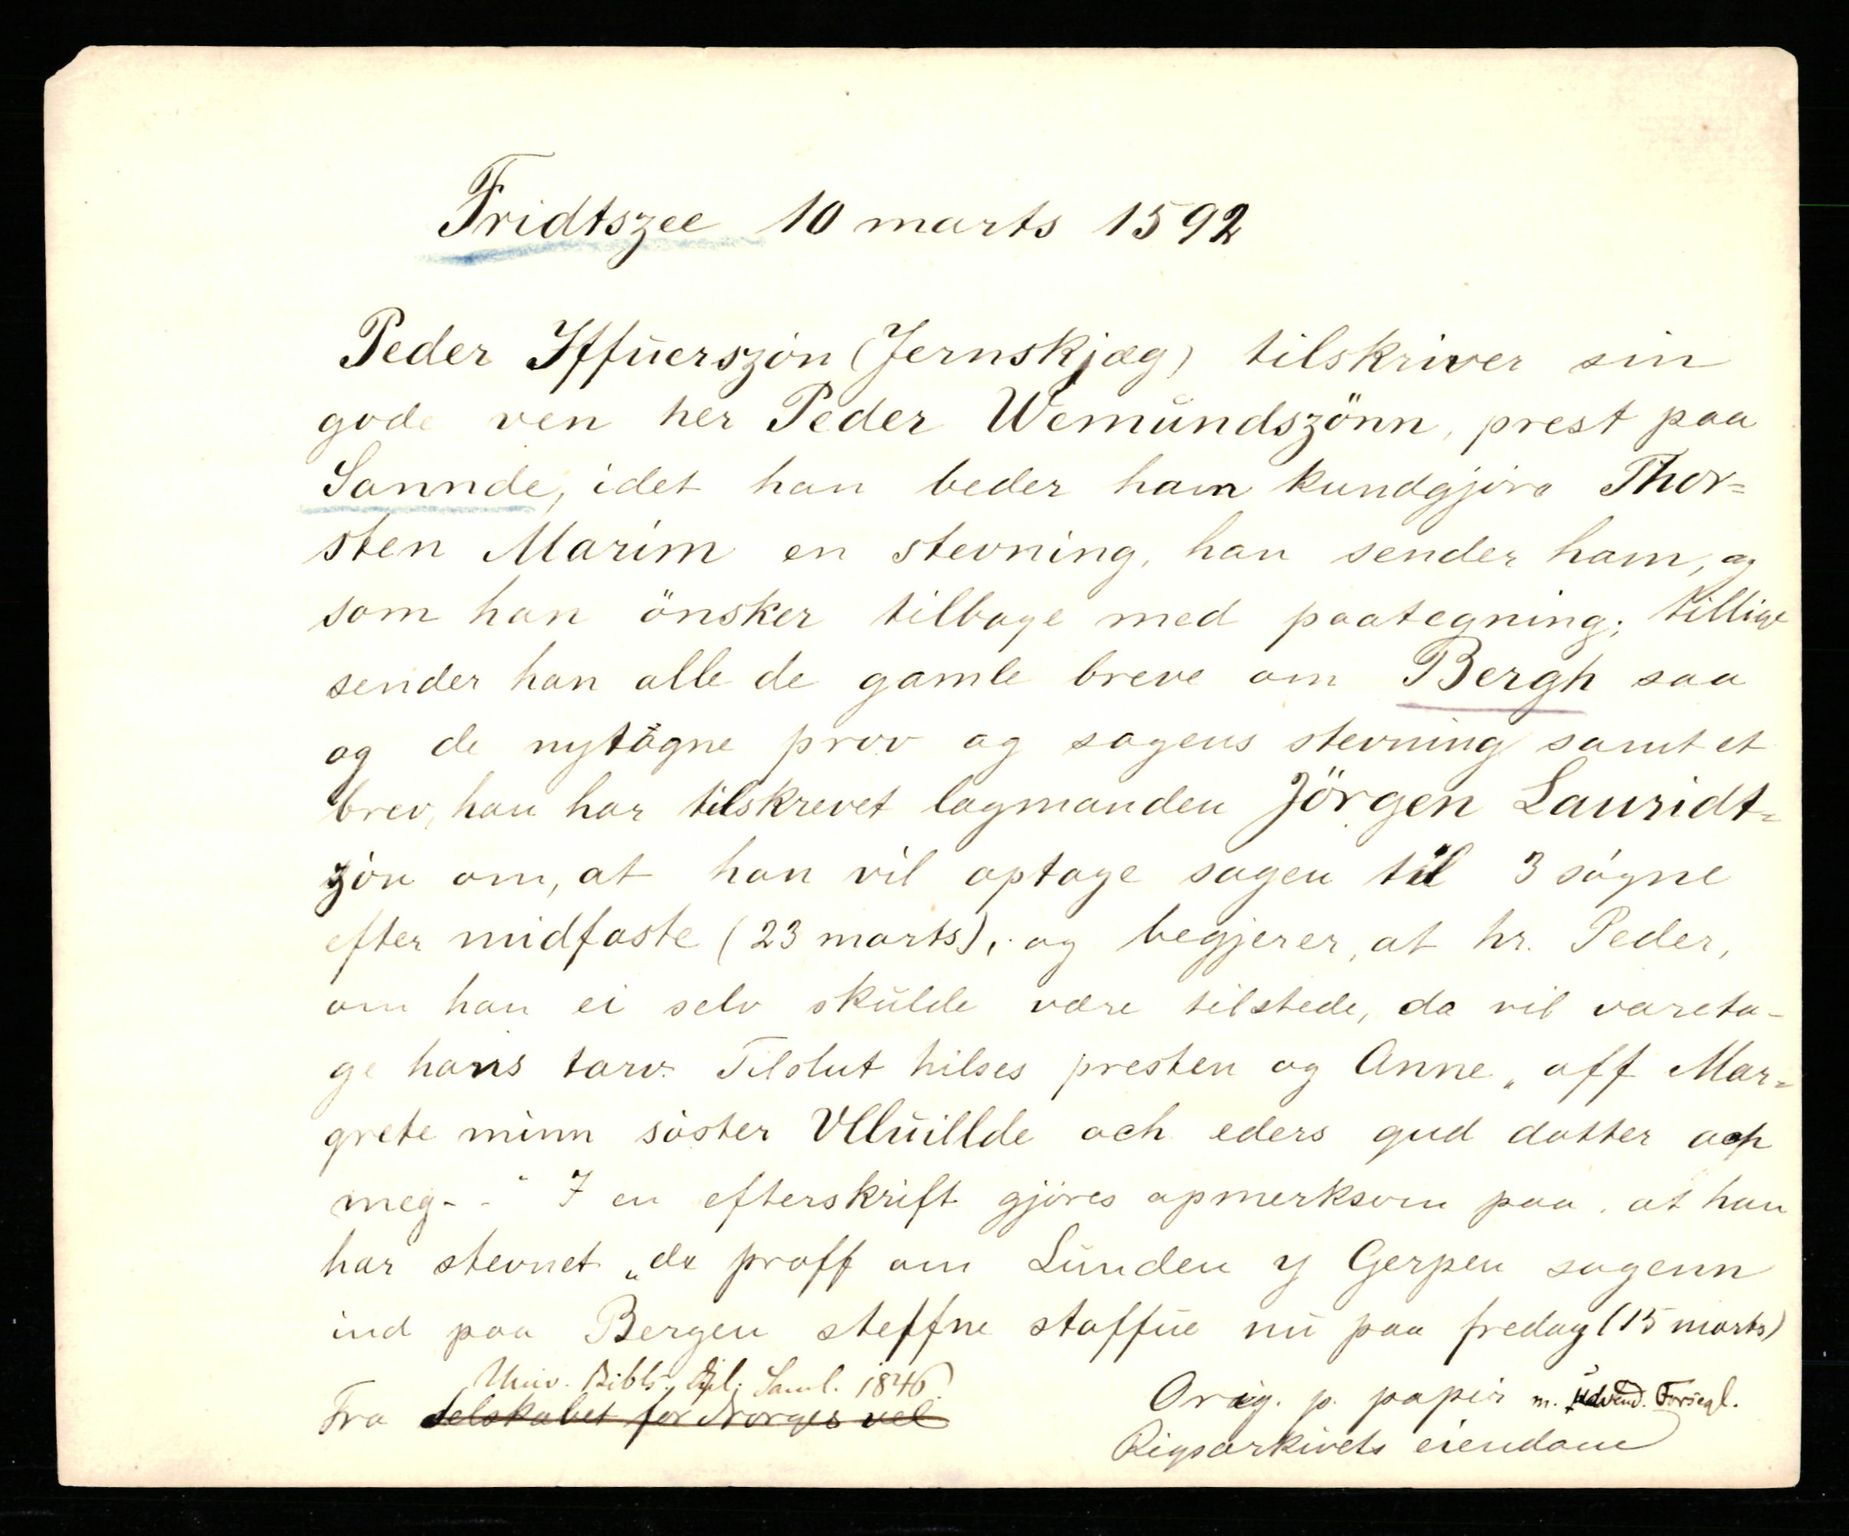 Fridtszee 10 marts 1592
Peder Iffuerszön (Jernskjæg) tilskriver sin
gode ven her Peder Wemundszönn, prest paa
Sannde, idet han beder ham kundgjöre Thor=
sten Marim en stevning, han sender ham, og
som han önsker tilbage med paategning; tillige
sender han alle de gamle breve om Bergh saa
og de nytagne prov og sagens stevning samt et
brev, han har tilskrevet lagmanden Jörgen Lauridt=
zön om, at han vil optage sagen til 3 sögne
efter midfaste (23 marts), og begjerer, at hr. Peder,
om han ei selv skulde være tilstede, da vil vareta-
ge hans tarv. Tilslut hilses presten og Anne „aff Mar=
grete minn söster Vlluillde och eders gud dotter och
meg - -" I en efterskrift gjöres opmerksom paa, at han
har stevnet „de proff om Lunden y Gerpen sogenn
ind paa Bergen steffne staffue nu paa fredag (15 marts)
Univ. Bibl. Dipl. Saml. 1846.
Fra Selskabet for Norges vel
Orig. p. papir m. udvend. Forsegl.
Rigsarkivets eiendom